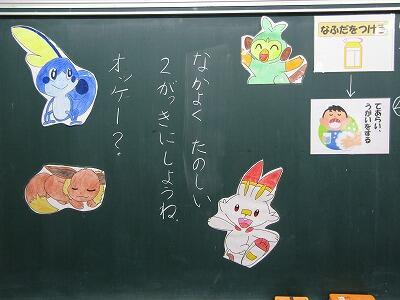 なかよく たのしい
2がっきにしようね。
オッケー？
なふだをつける
てあらい、
うがいをする